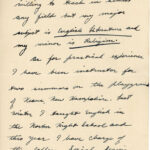 willing to teach in almost
any field but my major
subject is English Literature and
my minor is Religion.
As for practical experience
I have been instructor for
two summers on the playgrounds
of Keene, New Hampshire. Last
winter I taught English in
the Boston Night School and
this year I have charge of
the